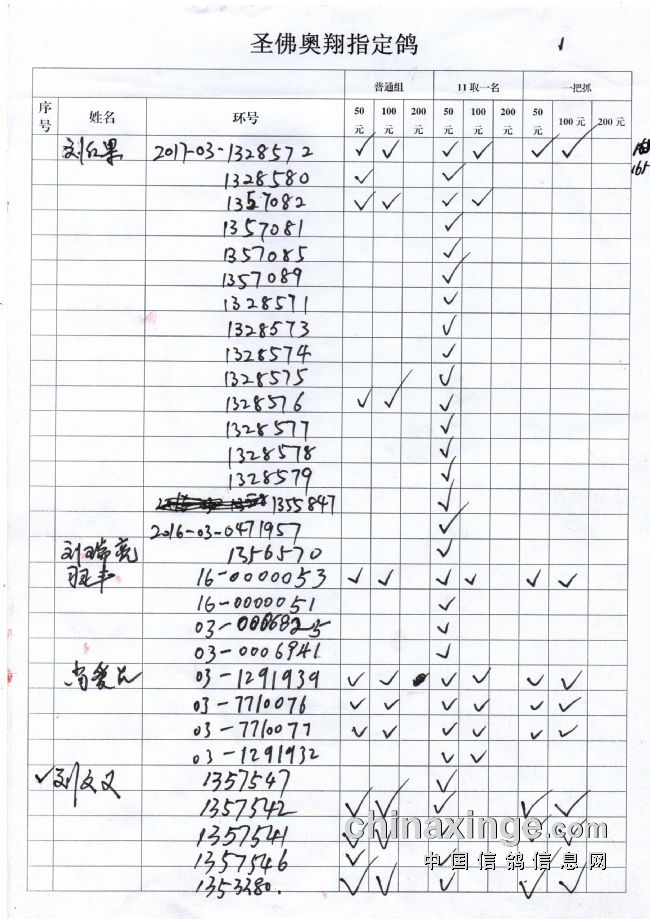 圣佛奥翔指定鸽 1
普通组 11取一名 一把抓
序号 姓名 环号 50元 100元 200元 50元 100元 200元 50元 100元 200元
刘红果 2017-03-1328572 ✓ ✓ ✓ ✓ ✓ ✓
1328580 ✓ ✓
1357082 ✓ ✓ ✓ ✓
1357081 ✓
1357085 ✓
1357089 ✓
1328571 ✓
1328573 ✓
1328574 ✓
1328575 ✓
1328576 ✓ ✓ ✓
1328577 ✓
1328578 ✓
1328579 ✓
1355847 ✓
2016-03-0471957 ✓
刘瑞亮 1356570 ✓
16-0000053 ✓ ✓ ✓ ✓ ✓ ✓
16-0000051 ✓
03-0006825 ✓
03-0006941 ✓
03-1291939 ✓ ✓ ✓ ✓ ✓ ✓
03-7710076 ✓ ✓ ✓ ✓ ✓ ✓
03-7710077 ✓ ✓ ✓ ✓ ✓ ✓
03-1291932 ✓ ✓
✓ 刘文义 1357547 ✓
1357542 ✓ ✓ ✓ ✓ ✓
1357541 ✓ ✓ ✓ ✓ ✓
1357546 ✓ ✓
1353380. ✓ ✓ ✓ ✓ ✓
chinaxinge.com
中国信鸽信息网